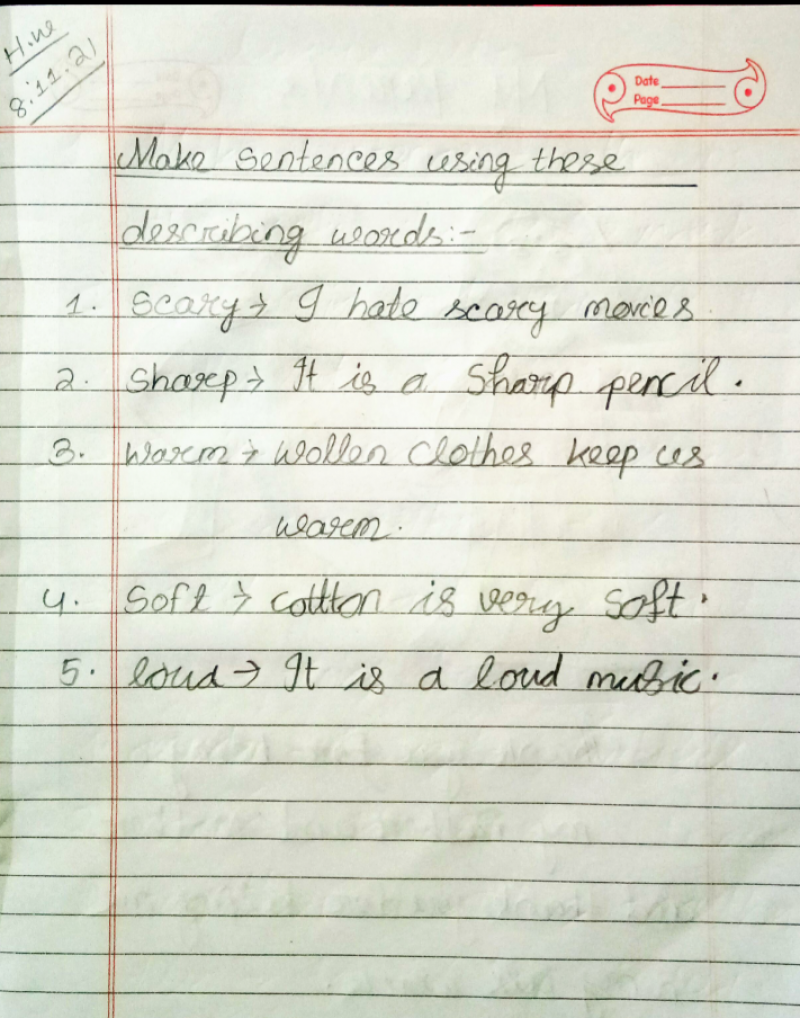 H.W
8.11.21
Date
Page
Make sentences using these
describing words:-
1. Scary → I hate scary movies
2. Sharp → It is a Sharp pencil.
3. Warm → Wollen clothes keep us
warm.
4. Soft → cottton is very soft.
5. loud → It is a loud music.